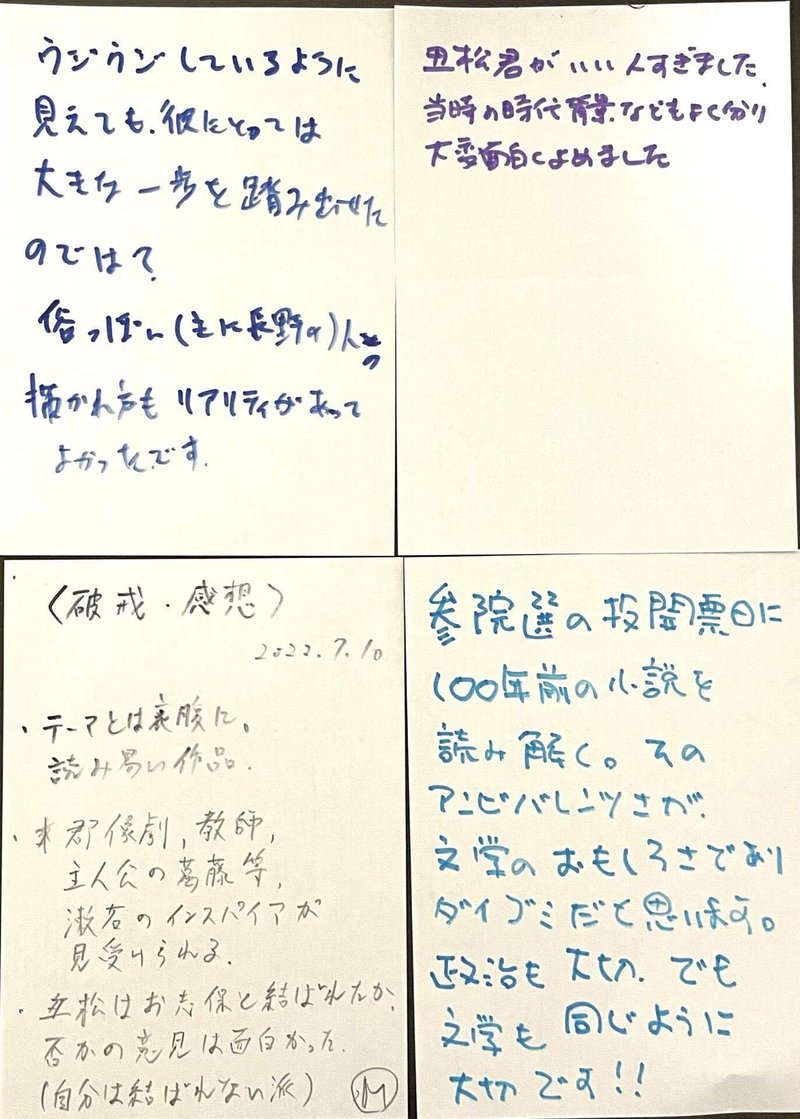 ウジウジしているように
見えても、彼にとっては
大きな一歩を踏み出せた
のでは?
俗っぽい(主に長野の)人々の
描かれ方も リアリティがあって
よかったです.
丑松君がいい人すぎました.
当時の時代背景などもよく分り
大変面白くよめました
〈破戒・感想〉
2022.7.10
・テーマとは裏腹に。
読み易い作品.
・群像劇, 教師,
主人公の葛藤等,
漱石のインスパイアが
見受けられる.
・丑松はお志保と結ばれたか,
否かの意見は面白かった.
(自分は結ばれない派) M
参院選の投開票日に
100年前の小説を
読み解く。その
アンビバレンツさが、
文学のおもしろさであり
ダイゴミだと思います。
政治も大切. でも
文学も同じように
大切です!!